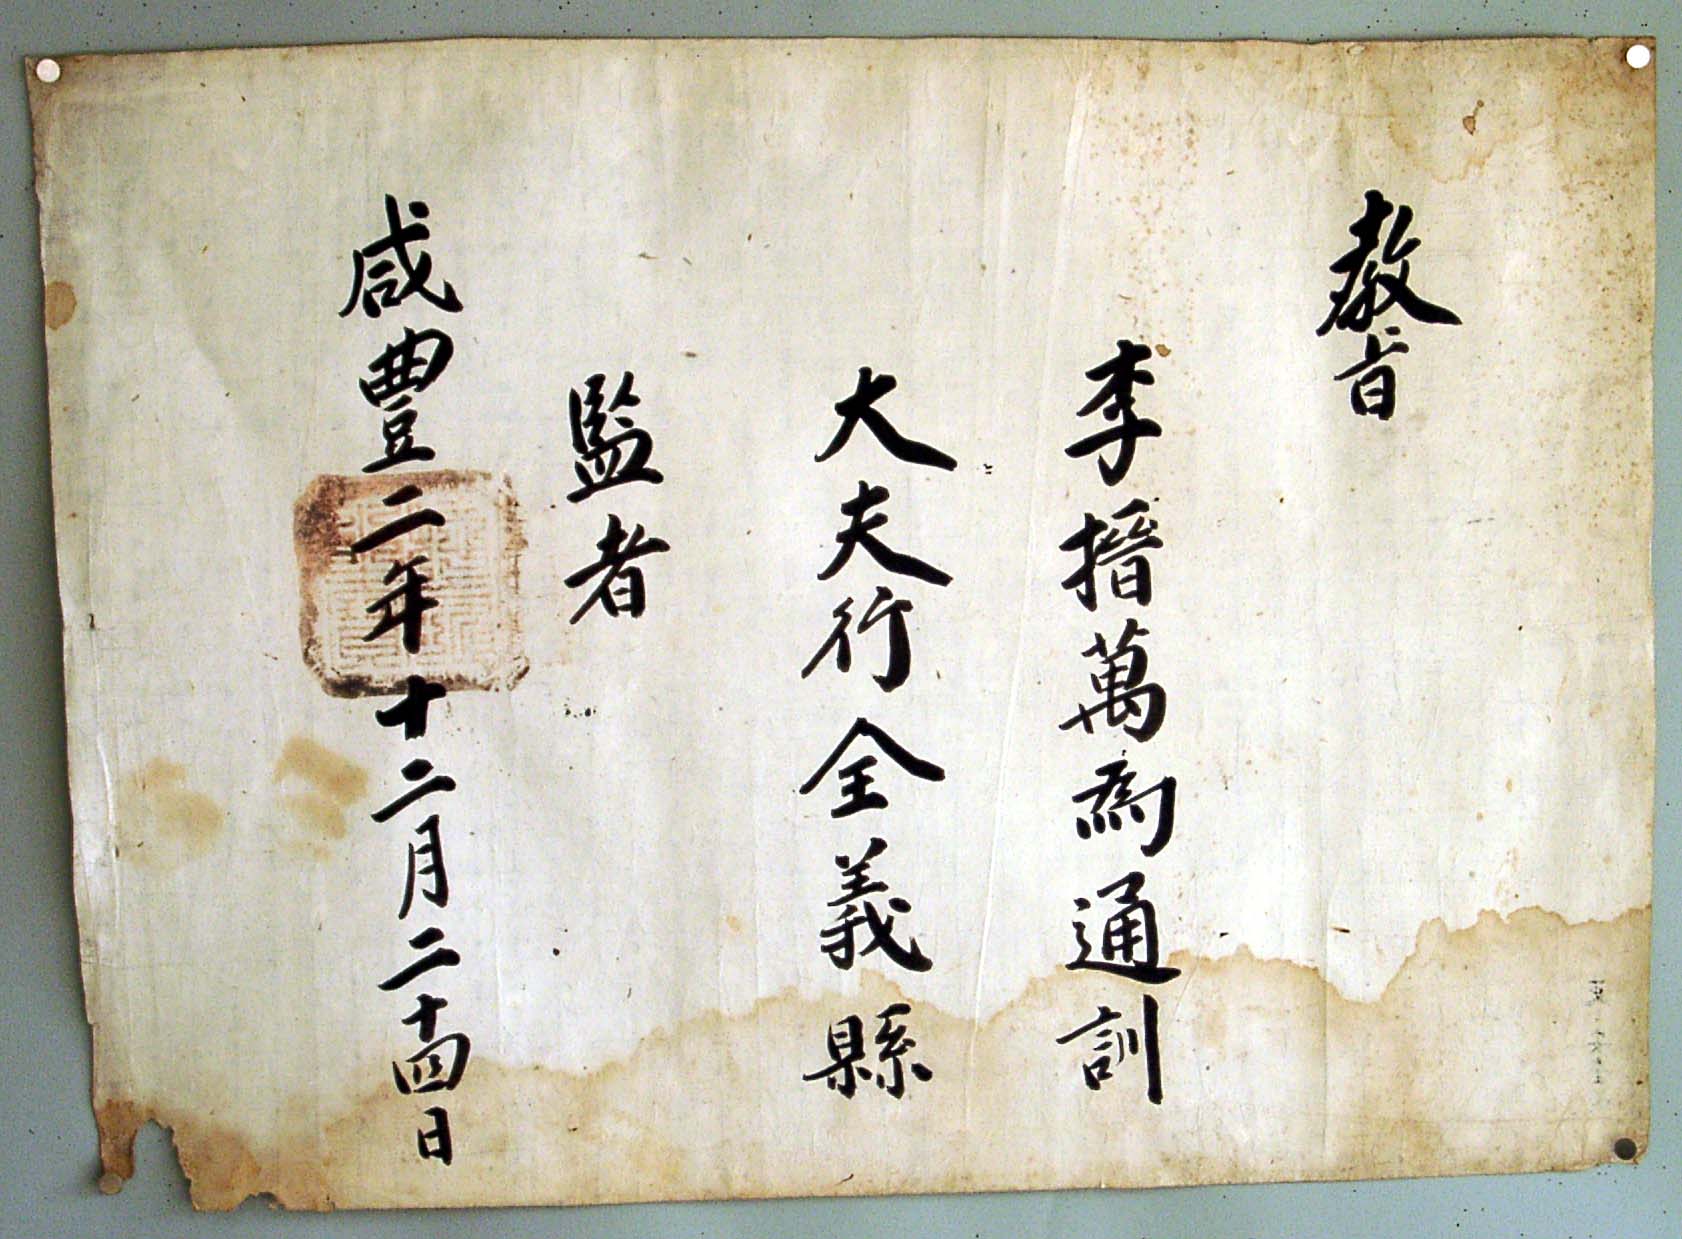 敎旨
李搢萬爲通訓
大夫行全義縣
監者
咸豐二年十二月二十四日